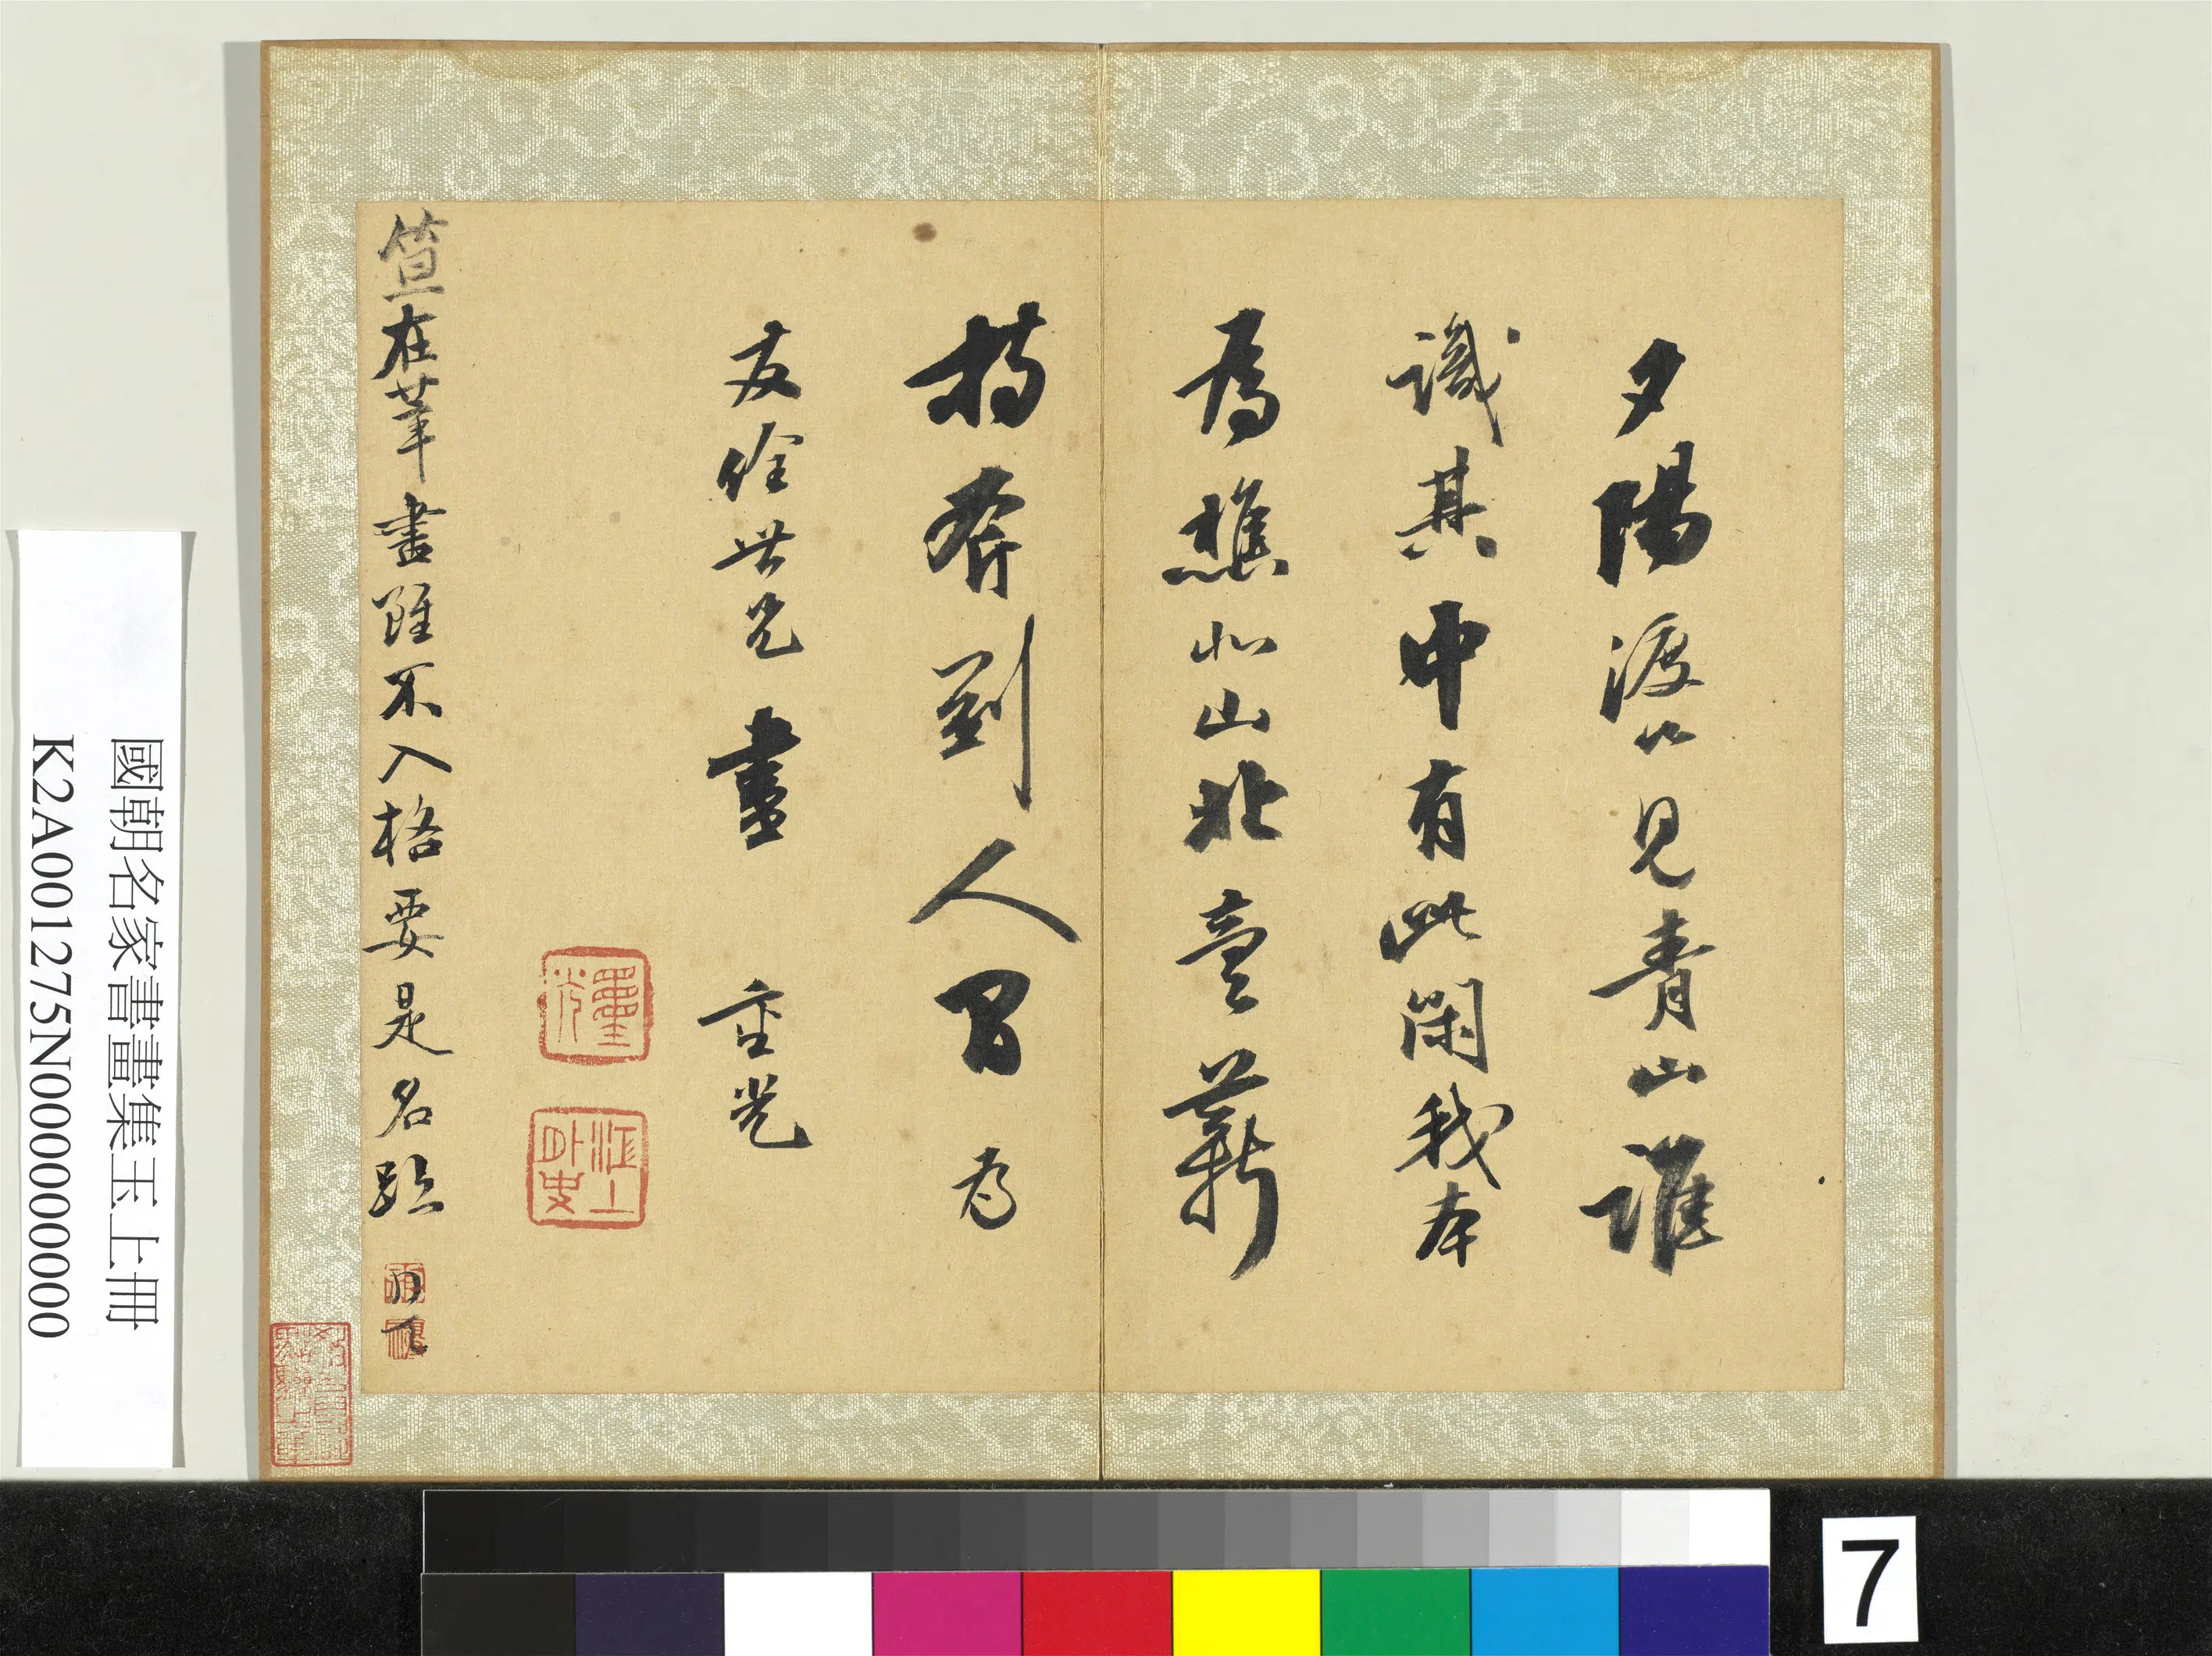 夕陽渡口見青山誰
識其中有此閑我本
為樵北山北毫薪
持斧到人間為
友絵世兄畫 重光
笪在莘書雖不入格要是名跡
江上外史
國朝名家書畫集玉上冊
K2A001275N000000000
7